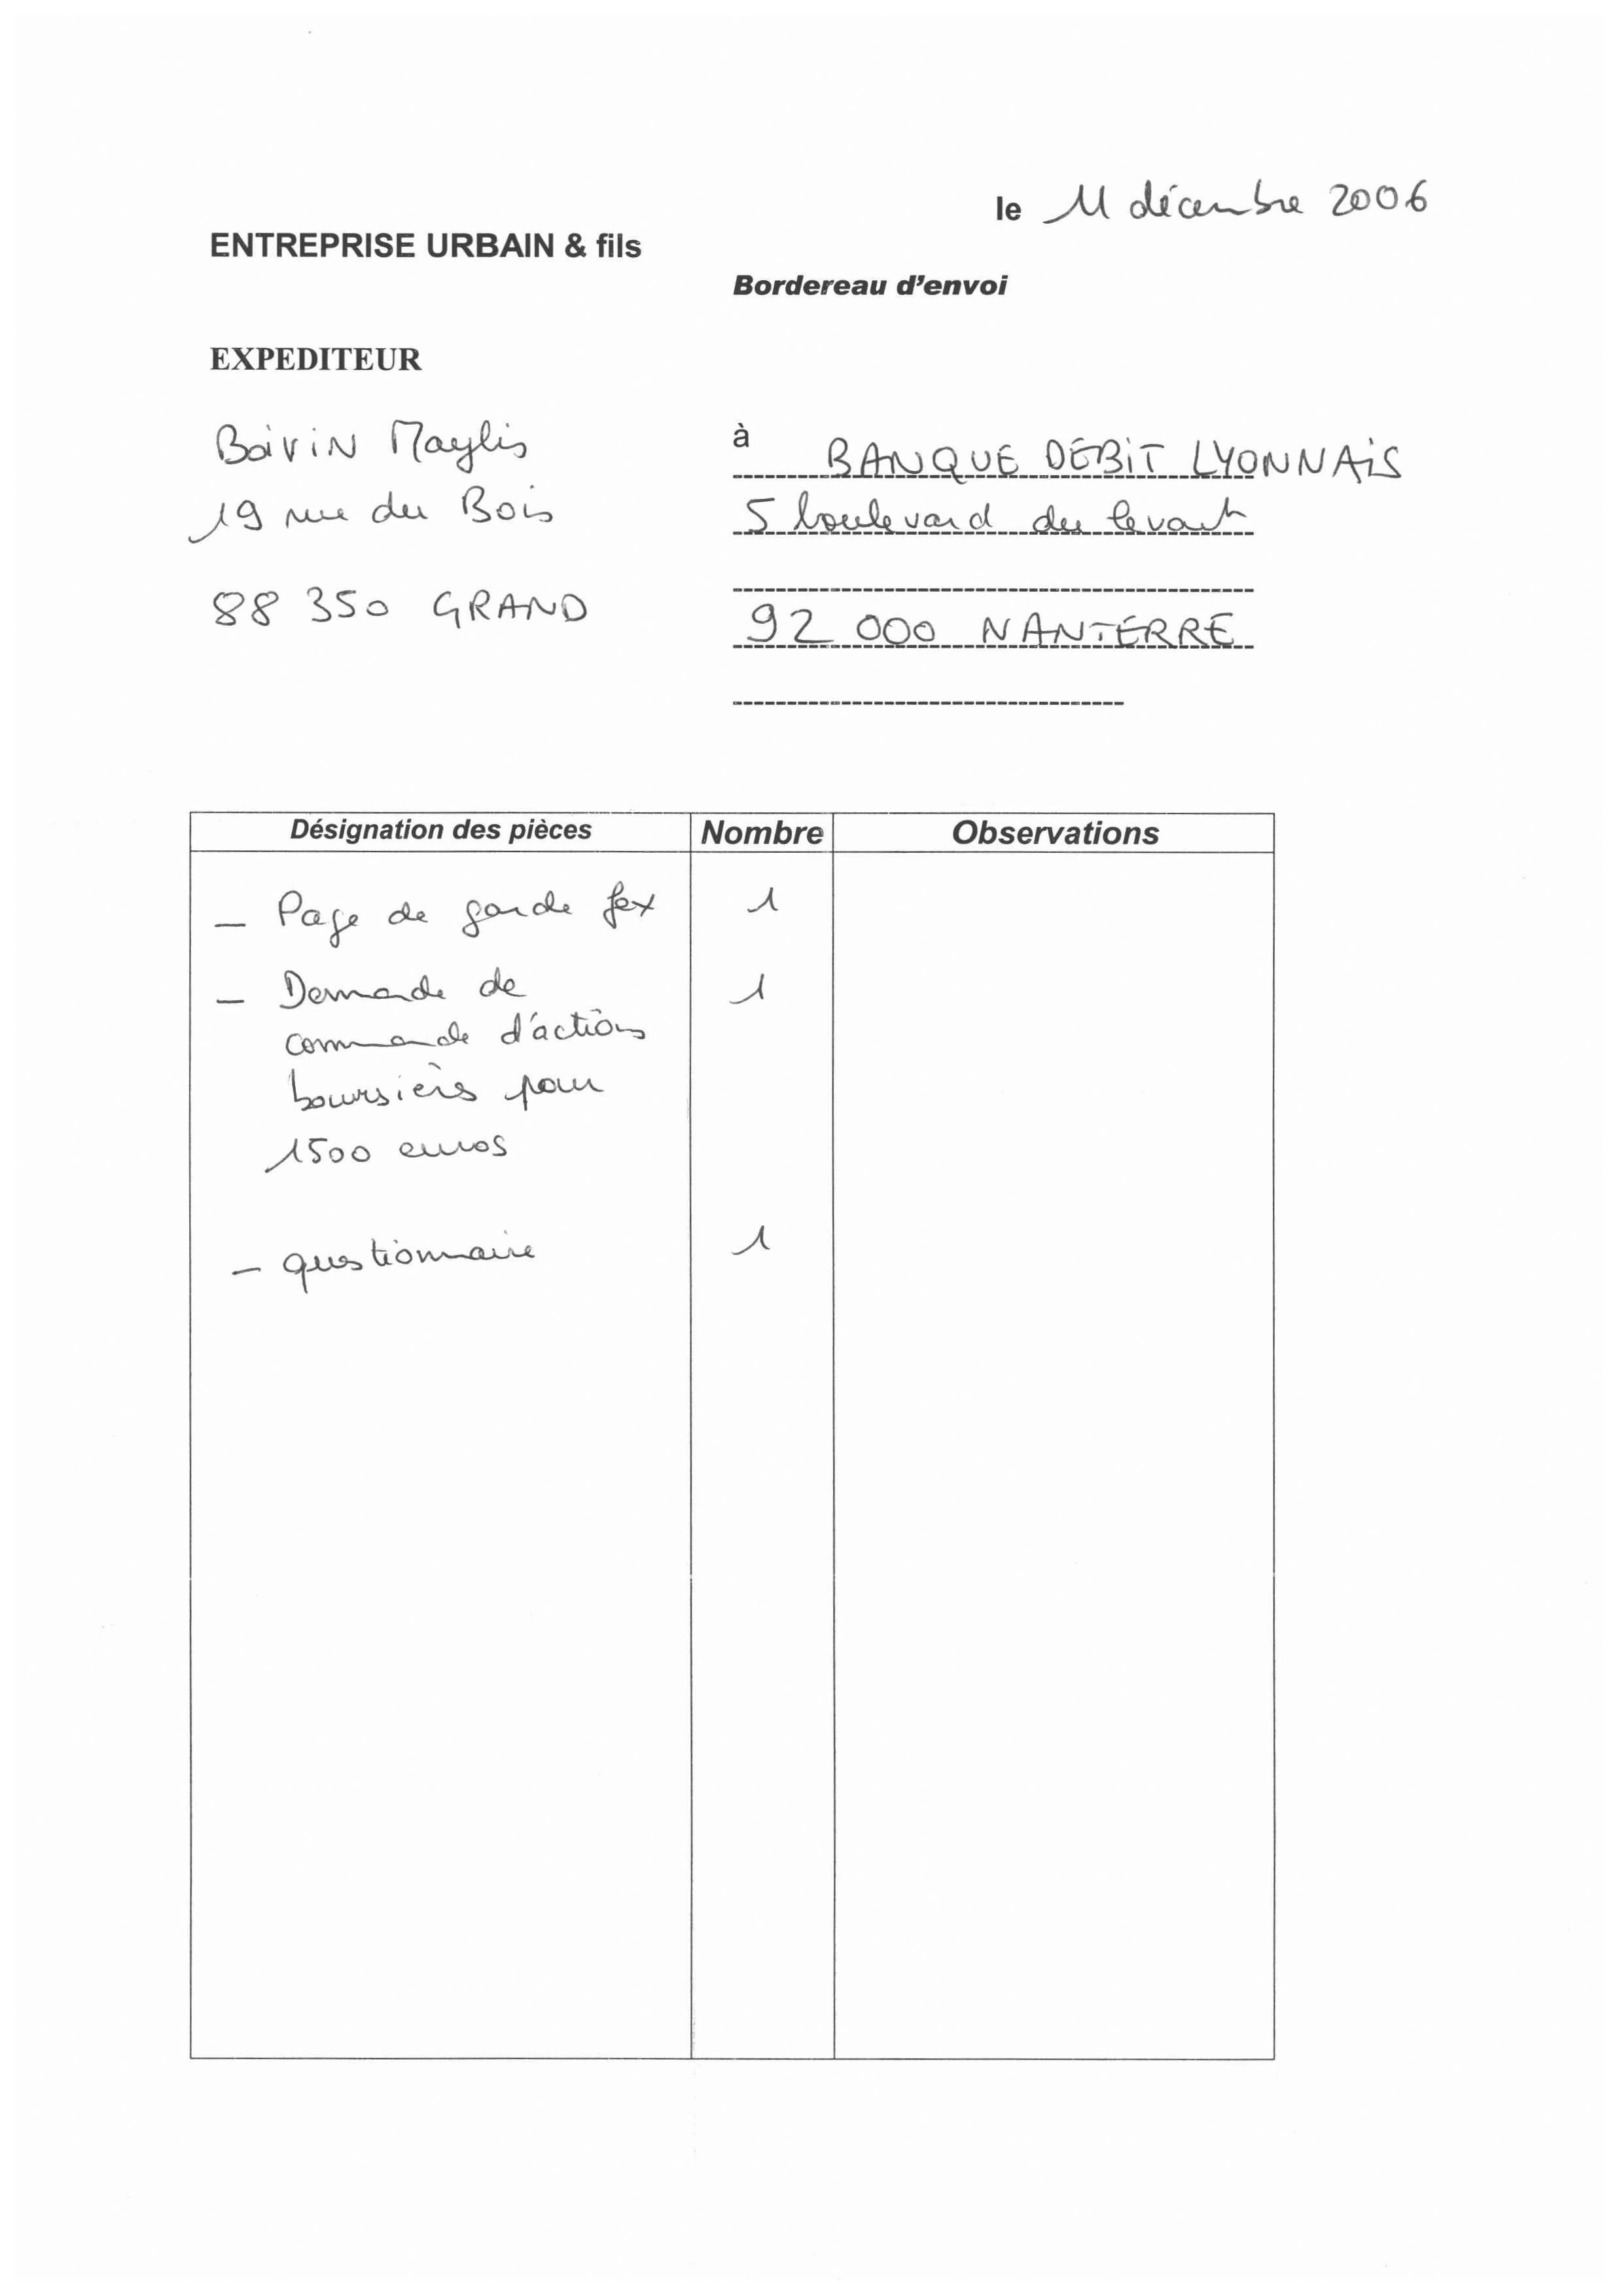 le 11 décembre 2006
ENTREPRISE URBAIN & fils
Bordereau d'envoi
EXPEDITEUR
Boivin Maylis
19 rue du Bois
88 350 GRAND
à BANQUE DÉBIT LYONNAIS
5 boulevard du levant
92 000 NANTERRE
Désignation des pièces Nombre Observations
– Page de garde fax 1
– Demande de 1
commande d'actions
boursières pour
1500 euros
– questionnaire 1